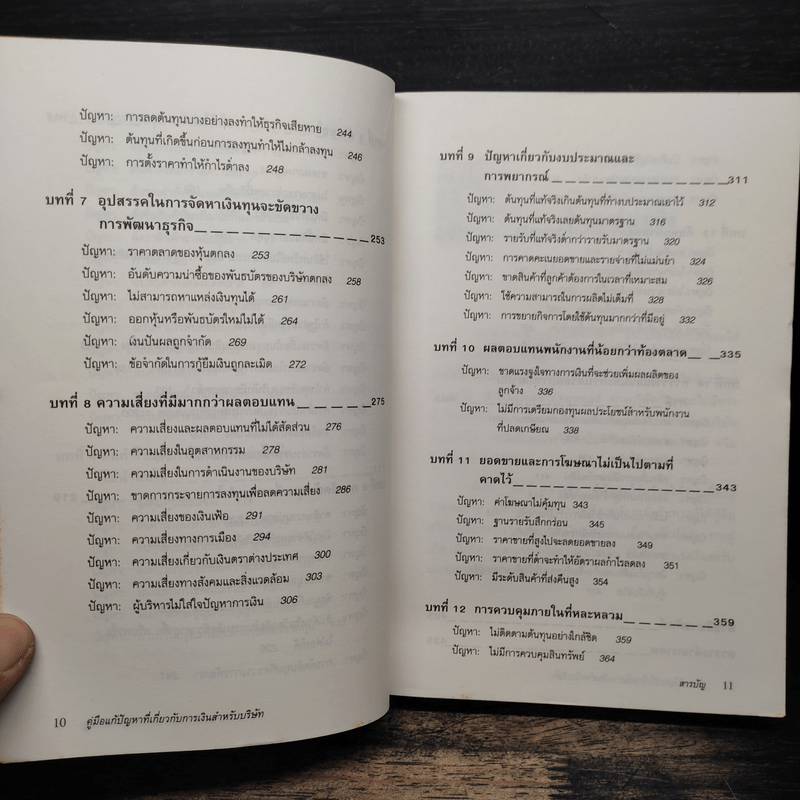 ปัญหา: การลดต้นทุนบางอย่างลงทำให้ธุรกิจเสียหาย 244
ปัญหา: ต้นทุนที่เกิดขึ้นก่อนการลงทุนทำให้ไม่กล้าลงทุน 246
ปัญหา: การตั้งราคาทำให้กำไรต่ำลง 248
บทที่ 7 อุปสรรคในการจัดหาเงินทุนจะขัดขวาง
การพัฒนาธุรกิจ 253
ปัญหา: ราคาตลาดของหุ้นตกลง 253
ปัญหา: อันดับความน่าซื้อของพันธบัตรของบริษัทตกลง 258
ปัญหา: ไม่สามารถหาแหล่งเงินทุนได้ 261
ปัญหา: ออกหุ้นหรือพันธบัตรใหม่ไม่ได้ 264
ปัญหา: เงินปันผลถูกจำกัด 269
ปัญหา: ข้อจำกัดในการกู้ยืมเงินถูกละเมิด 272
บทที่ 8 ความเสี่ยงที่มีมากกว่าผลตอบแทน 275
ปัญหา: ความเสี่ยงและผลตอบแทนที่ไม่ได้สัดส่วน 276
ปัญหา: ความเสี่ยงในอุตสาหกรรม 278
ปัญหา: ความเสี่ยงในการดำเนินงานของบริษัท 281
ปัญหา: ขาดการกระจายการลงทุนเพื่อลดความเสี่ยง 286
ปัญหา: ความเสี่ยงของเงินเฟ้อ 291
ปัญหา: ความเสี่ยงทางการเมือง 294
ปัญหา: ความเสี่ยงเกี่ยวกับเงินตราต่างประเทศ 300
ปัญหา: ความเสี่ยงทางสังคมและสิ่งแวดล้อม 303
ปัญหา: ผู้บริหารไม่ใส่ใจปัญหาการเงิน 306
10 คู่มือแก้ปัญหาที่เกี่ยวกับการเงินสำหรับบริษัท
บทที่ 9 ปัญหาเกี่ยวกับงบประมาณและ
การพยากรณ์ 311
ปัญหา: ต้นทุนที่แท้จริงเกินต้นทุนที่ทำงบประมาณเอาไว้ 312
ปัญหา: ต้นทุนที่แท้จริงเลยต้นทุนมาตรฐาน 316
ปัญหา: รายรับที่แท้จริงต่ำกว่ารายรับมาตรฐาน 320
ปัญหา: การคาดคะเนยอดขายและรายจ่ายที่ไม่แม่นยำ 324
ปัญหา: ขาดสินค้าที่ลูกค้าต้องการในเวลาที่เหมาะสม 326
ปัญหา: ใช้ความสามารถในการผลิตไม่เต็มที่ 328
ปัญหา: การขยายกิจการโดยใช้ต้นทุนมากกว่าที่มีอยู่ 332
บทที่ 10 ผลตอบแทนพนักงานที่น้อยกว่าท้องตลาด 335
ปัญหา: ขาดแรงจูงใจทางการเงินที่จะช่วยเพิ่มผลผลิตของ
ลูกจ้าง 336
ปัญหา: ไม่มีการเตรียมกองทุนผลประโยชน์สำหรับพนักงาน
ที่ปลดเกษียณ 338
บทที่ 11 ยอดขายและการโฆษณาไม่เป็นไปตามที่
คาดไว้ 343
ปัญหา: ค่าโฆษณาไม่คุ้มทุน 343
ปัญหา: ฐานรายรับสึกกร่อน 345
ปัญหา: ราคาขายที่สูงไปจะลดยอดขายลง 349
ปัญหา: ราคาขายที่ต่ำจะทำให้อัตราผลกำไรลดลง 351
ปัญหา: มีระดับสินค้าที่ส่งคืนสูง 354
บทที่ 12 การควบคุมภายในที่หละหลวม 359
ปัญหา: ไม่ติดตามต้นทุนอย่างใกล้ชิด 359
ปัญหา: ไม่มีการควบคุมสินทรัพย์ 364
สารบัญ 11